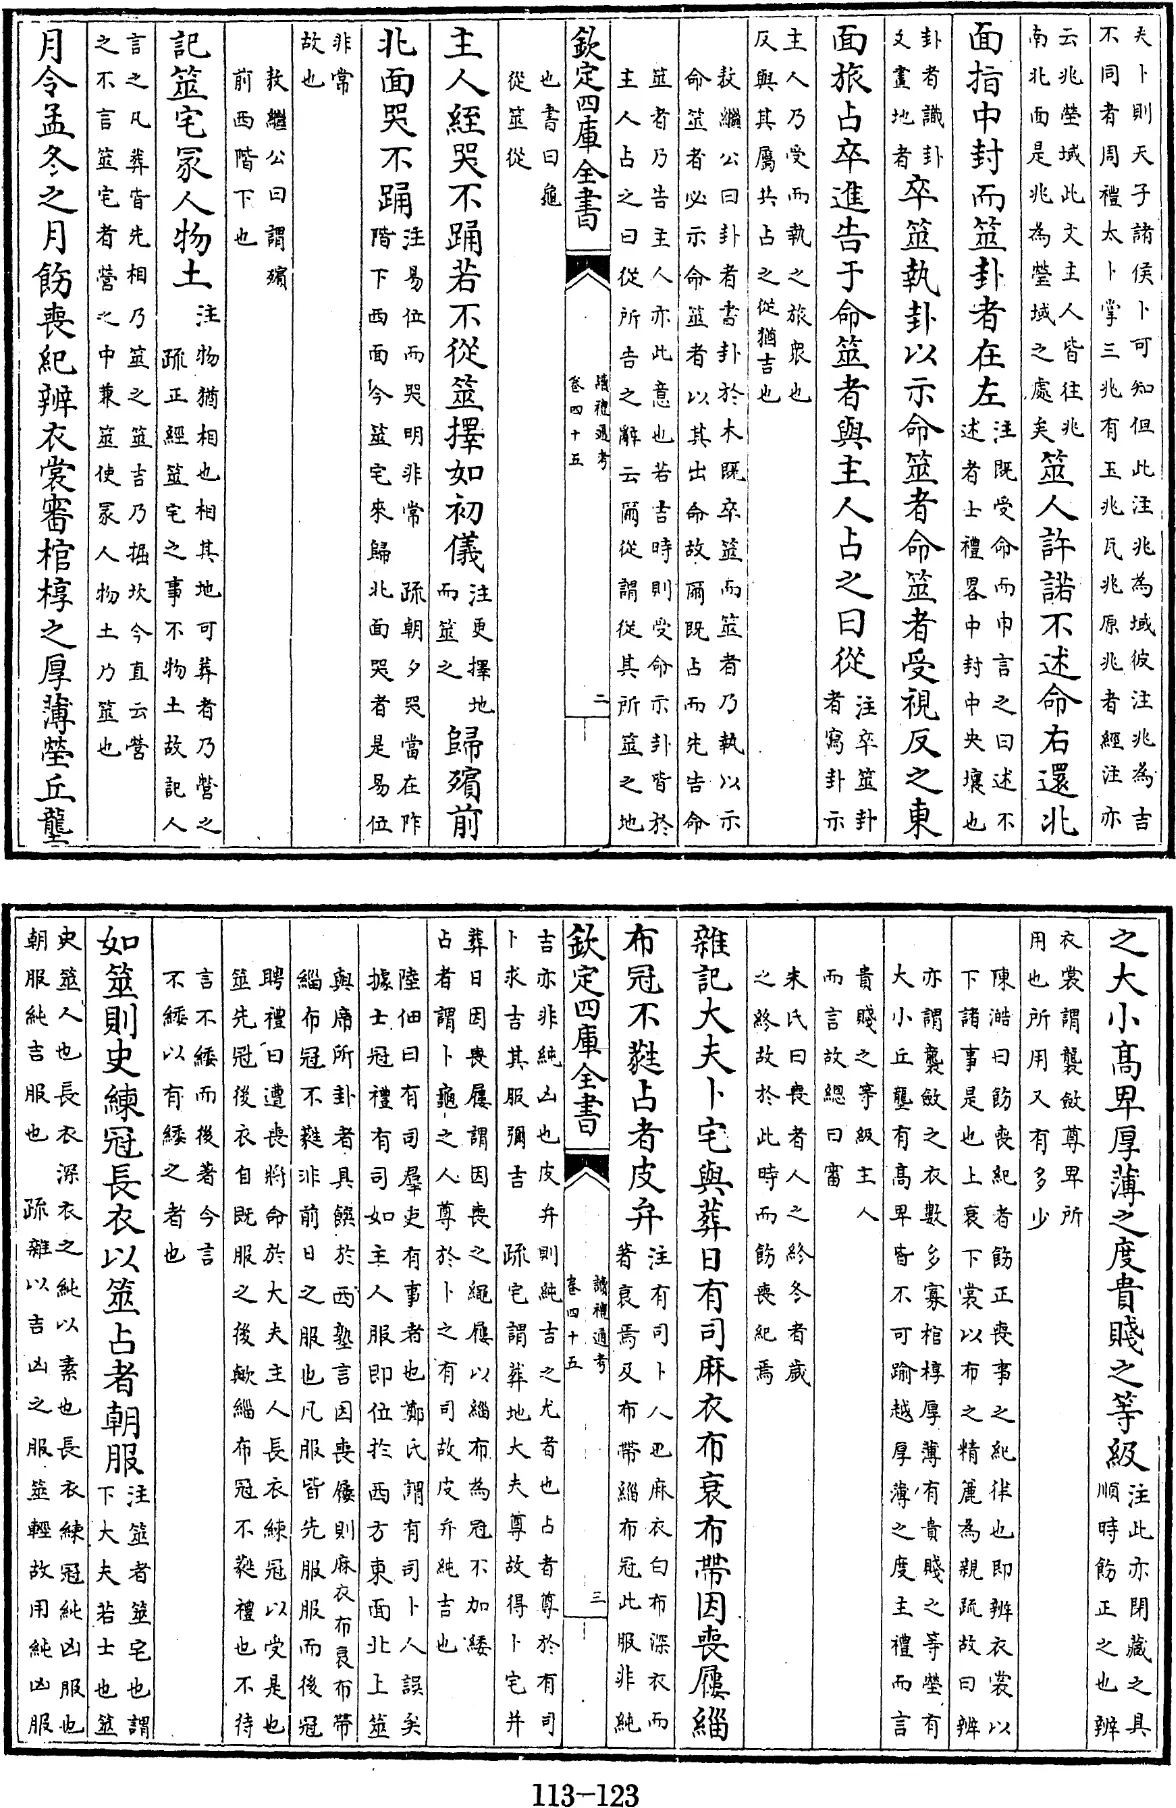 夫卜則天子諸侯卜可知但此注兆為域彼注兆為吉
不同者周禮太卜掌三兆有玉兆瓦兆原兆者經注亦
云兆塋域此文主人皆往兆
南北面是兆為塋域之處矣筮人許諾不述命右還北
面指中封而筮卦者在左注既受命而申言之曰述不
述者士禮畧中封中央壤也
卦者識卦
爻畫地者卒筮執卦以示命筮者命筮者受視反之東
面旅占卒進告于命筮者與主人占之曰從注卒筮卦
者寫卦示
主人乃受而執之旅衆也
反與其屬共占之從猶吉也
敖繼公曰卦者書卦於木既卒筮而筮者乃執以示
命筮者必示命筮者以其出命故爾既占而先告命
筮者乃告主人亦此意也若吉時則受命示卦皆於
主人占之曰從所告之辭云爾從謂從其所筮之地
也書曰龜
從筮從
欽定四庫全書
讀禮通考
卷四十五
二
主人絰哭不踊若不從筮擇如初儀注更擇地
而筮之歸殯前
北面哭不踊注易位而哭明非常 疏朝夕哭當在阼
階下西面今筮宅來歸北面哭者是易位
非常
故也
敖繼公曰謂殯
前西階下也
記筮宅冢人物土注物猶相也相其地可葬者乃營之
疏正經筮宅之事不物土故記人
言之凡葬皆先相乃筮之筮吉乃掘坎今直云營
之不言筮宅者營之中兼筮使冢人物土乃筮也
月令孟冬之月飭喪紀辨衣裳審棺椁之厚薄塋丘壟
之大小高卑厚薄之度貴賤之等級注此亦閉藏之具
順時飭正之也辨
衣裳謂襲斂尊卑所
用也所用又有多少
陳澔曰飭喪紀者飭正喪事之紀律也即辨衣裳以
下諸事是也上衰下裳以布之精麤為親疏故曰辨
亦謂襲斂之衣數多寡棺椁厚薄有貴賤之等塋有
大小丘壟有高卑皆不可踰越厚薄之度主禮而言
貴賤之等級主人
而言故總曰審
朱氏曰喪者人之終冬者歲
之終故於此時而飭喪紀焉
雜記大夫卜宅與葬日有司麻衣布衰布帶因喪屨緇
布冠不蕤占者皮弁注有司卜人也麻衣白布深衣而
著衰焉及布帶緇布冠此服非純
吉亦非純凶也皮弁則純吉之尤者也占者尊於有司
卜求吉其服彌吉 疏宅謂葬地大夫尊故得卜宅并
欽定四庫全書
讀禮通考
卷四十五
三
葬日因喪屨謂因喪之繩屨以緇布為冠不加緌
占者謂卜龜之人尊於卜之有司故皮弁純吉也
陸佃曰有司羣吏有事者也鄭氏謂有司卜人誤矣
據士冠禮有司如主人服即位於西方東面北上筮
與席所卦者具饌於西塾言因喪屨則麻衣布衰布帶
緇布冠不蕤非前日之服也凡服皆先服服而後冠
聘禮曰遭喪將命於大夫主人長衣練冠以受是也
筮先冠後衣自既服之後歟緇布冠不蕤禮也不待
言不緌而後著今言
不緌以有緌之者也
如筮則史練冠長衣以筮占者朝服注筮者筮宅也謂
下大夫若士也筮
史筮人也長衣深衣之純以素也長衣練冠純凶服也
朝服純吉服也 疏雜以吉凶之服筮輕故用純凶服
113-123